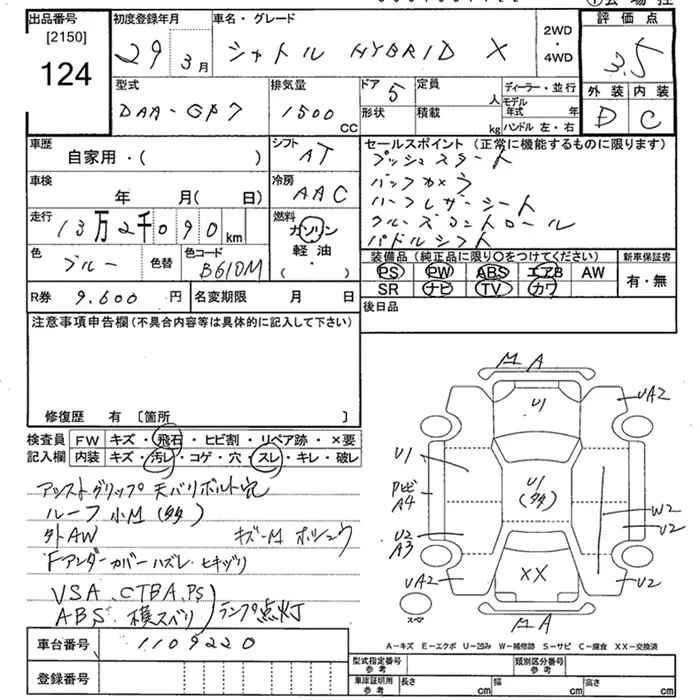 出品番号
[2150]
124
初度登録年月
29 3月
車名・グレード
シャトル HYBRID X
2WD
・
4WD
評価点
3.5
外装 内装
D C
型式
DAA-GP7
排気量
1500
CC
ドア 5
定員
人
形状
積載
kg
ディーラー・並行
モデル
年式 年
ハンドル 左・右
車歴
自家用・( )
シフト
AT
車検
年 月( 日)
冷房
AAC
走行
13万2千090
km
燃料
ガソリン
軽油
・
( )
色
ブルー
色替
色コード
B610M
R券 9.600 円
名変期限 月 日
セールスポイント(正常に機能するものに限ります)
プッシュスタート
バックカメラ
ハーフレザーシート
クルーズコントロール
パドルシフト
装備品(純正品に限り〇をつけてください)
PS PW ABS エアB AW
SR ナビ TV カワ
新車保証書
有・無
後日品
注意事項申告欄(不具合内容等は具体的に記入して下さい)
修復歴 有 〔箇所 〕
検査員
記入欄
FW キズ・飛石・ヒビ割・リペア跡・×要
内装 キズ・汚レ・コゲ・穴・スレ・キレ・破レ
アシストグリップ 天バリボルト穴
ルーフ 小M(多)
外AW キズ-M ホシュウ
Fアンダーカバーハズレ・ヒキヅリ
VSA.CTBA.PS
ABS.横スベリ
ランプ点灯
車台番号 1109220
登録番号
MA
U1
UA2
U1
U1
(多)
A4
W2
U2
U2
A3
UA2
XX
U2
スペア
MA
A-キズ E-エクボ U-凹み W-補修跡 S-サビ C-腐食 XX-交換済
型式指定番号
参考
類別区分番号
参考
車庫証明用
参考
長さ cm
幅 cm
高さ cm